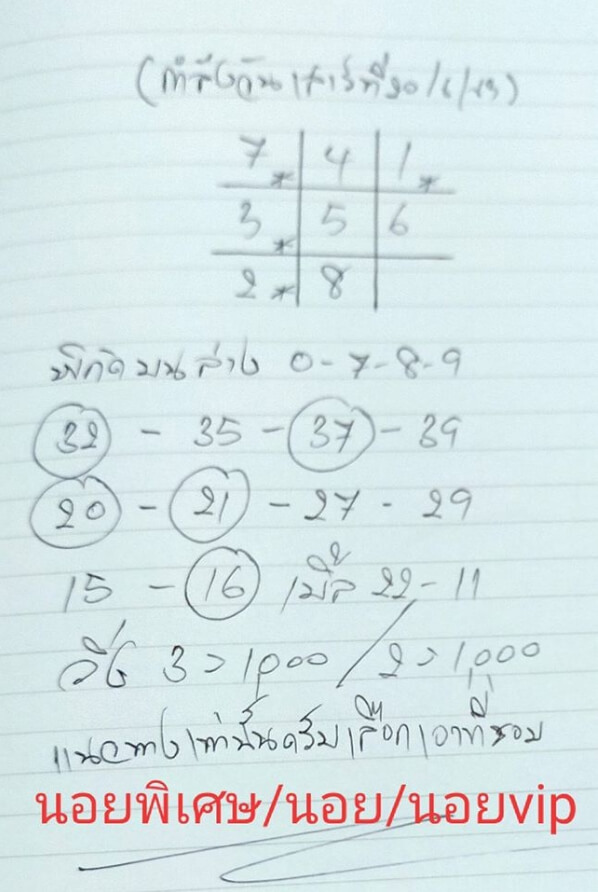 (กำลังวันเสาร์ที่20/6/63)
7* 4 1*
3* 5 6
2* 8
พิกัดบนล่าง 0-7-8-9
32 - 35 - 37 - 39
20 - 21 - 27 - 29
15 - 16 เบิ้ล 22-11
วิ่ง 3>1,000 / 2>1,000
แนวทางเท่านั้นครับเลือกเอาที่ชอบ
นอยพิเศษ/นอย/นอยvip